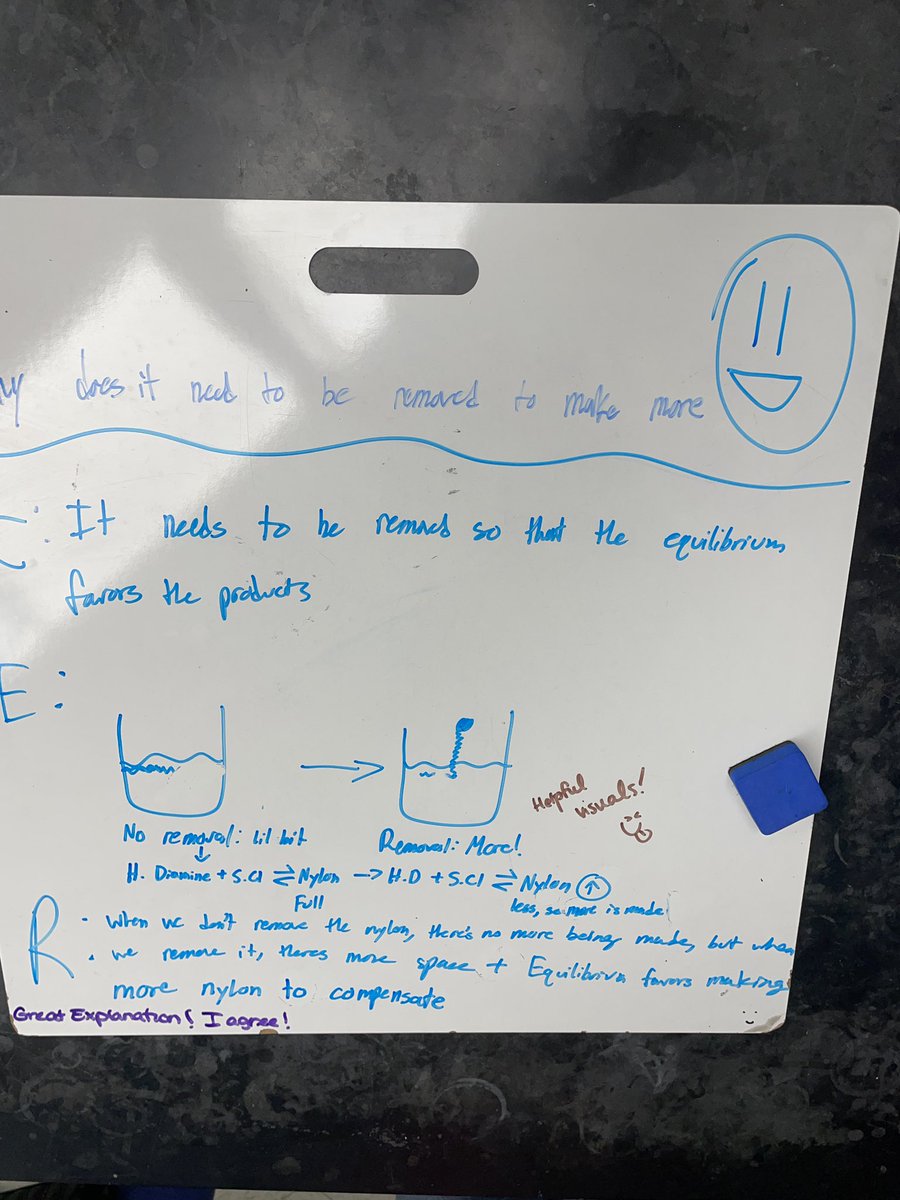 does it need to be removed to make more
C: It needs to be removed so that the equilibrium
favors the products
E:
Helpful visuals!
No removal: lil bit
Removal: More!
H. Diamine + S.Cl ⇌ Nylon → H.D + S.Cl ⇌ Nylon ↑
Full
less, so more is made
R · When we don't remove the nylon, there's no more being made, but when
· we remove it, theres more space + Equilibrium favors making
more nylon to compensate
Great Explanation! I agree!